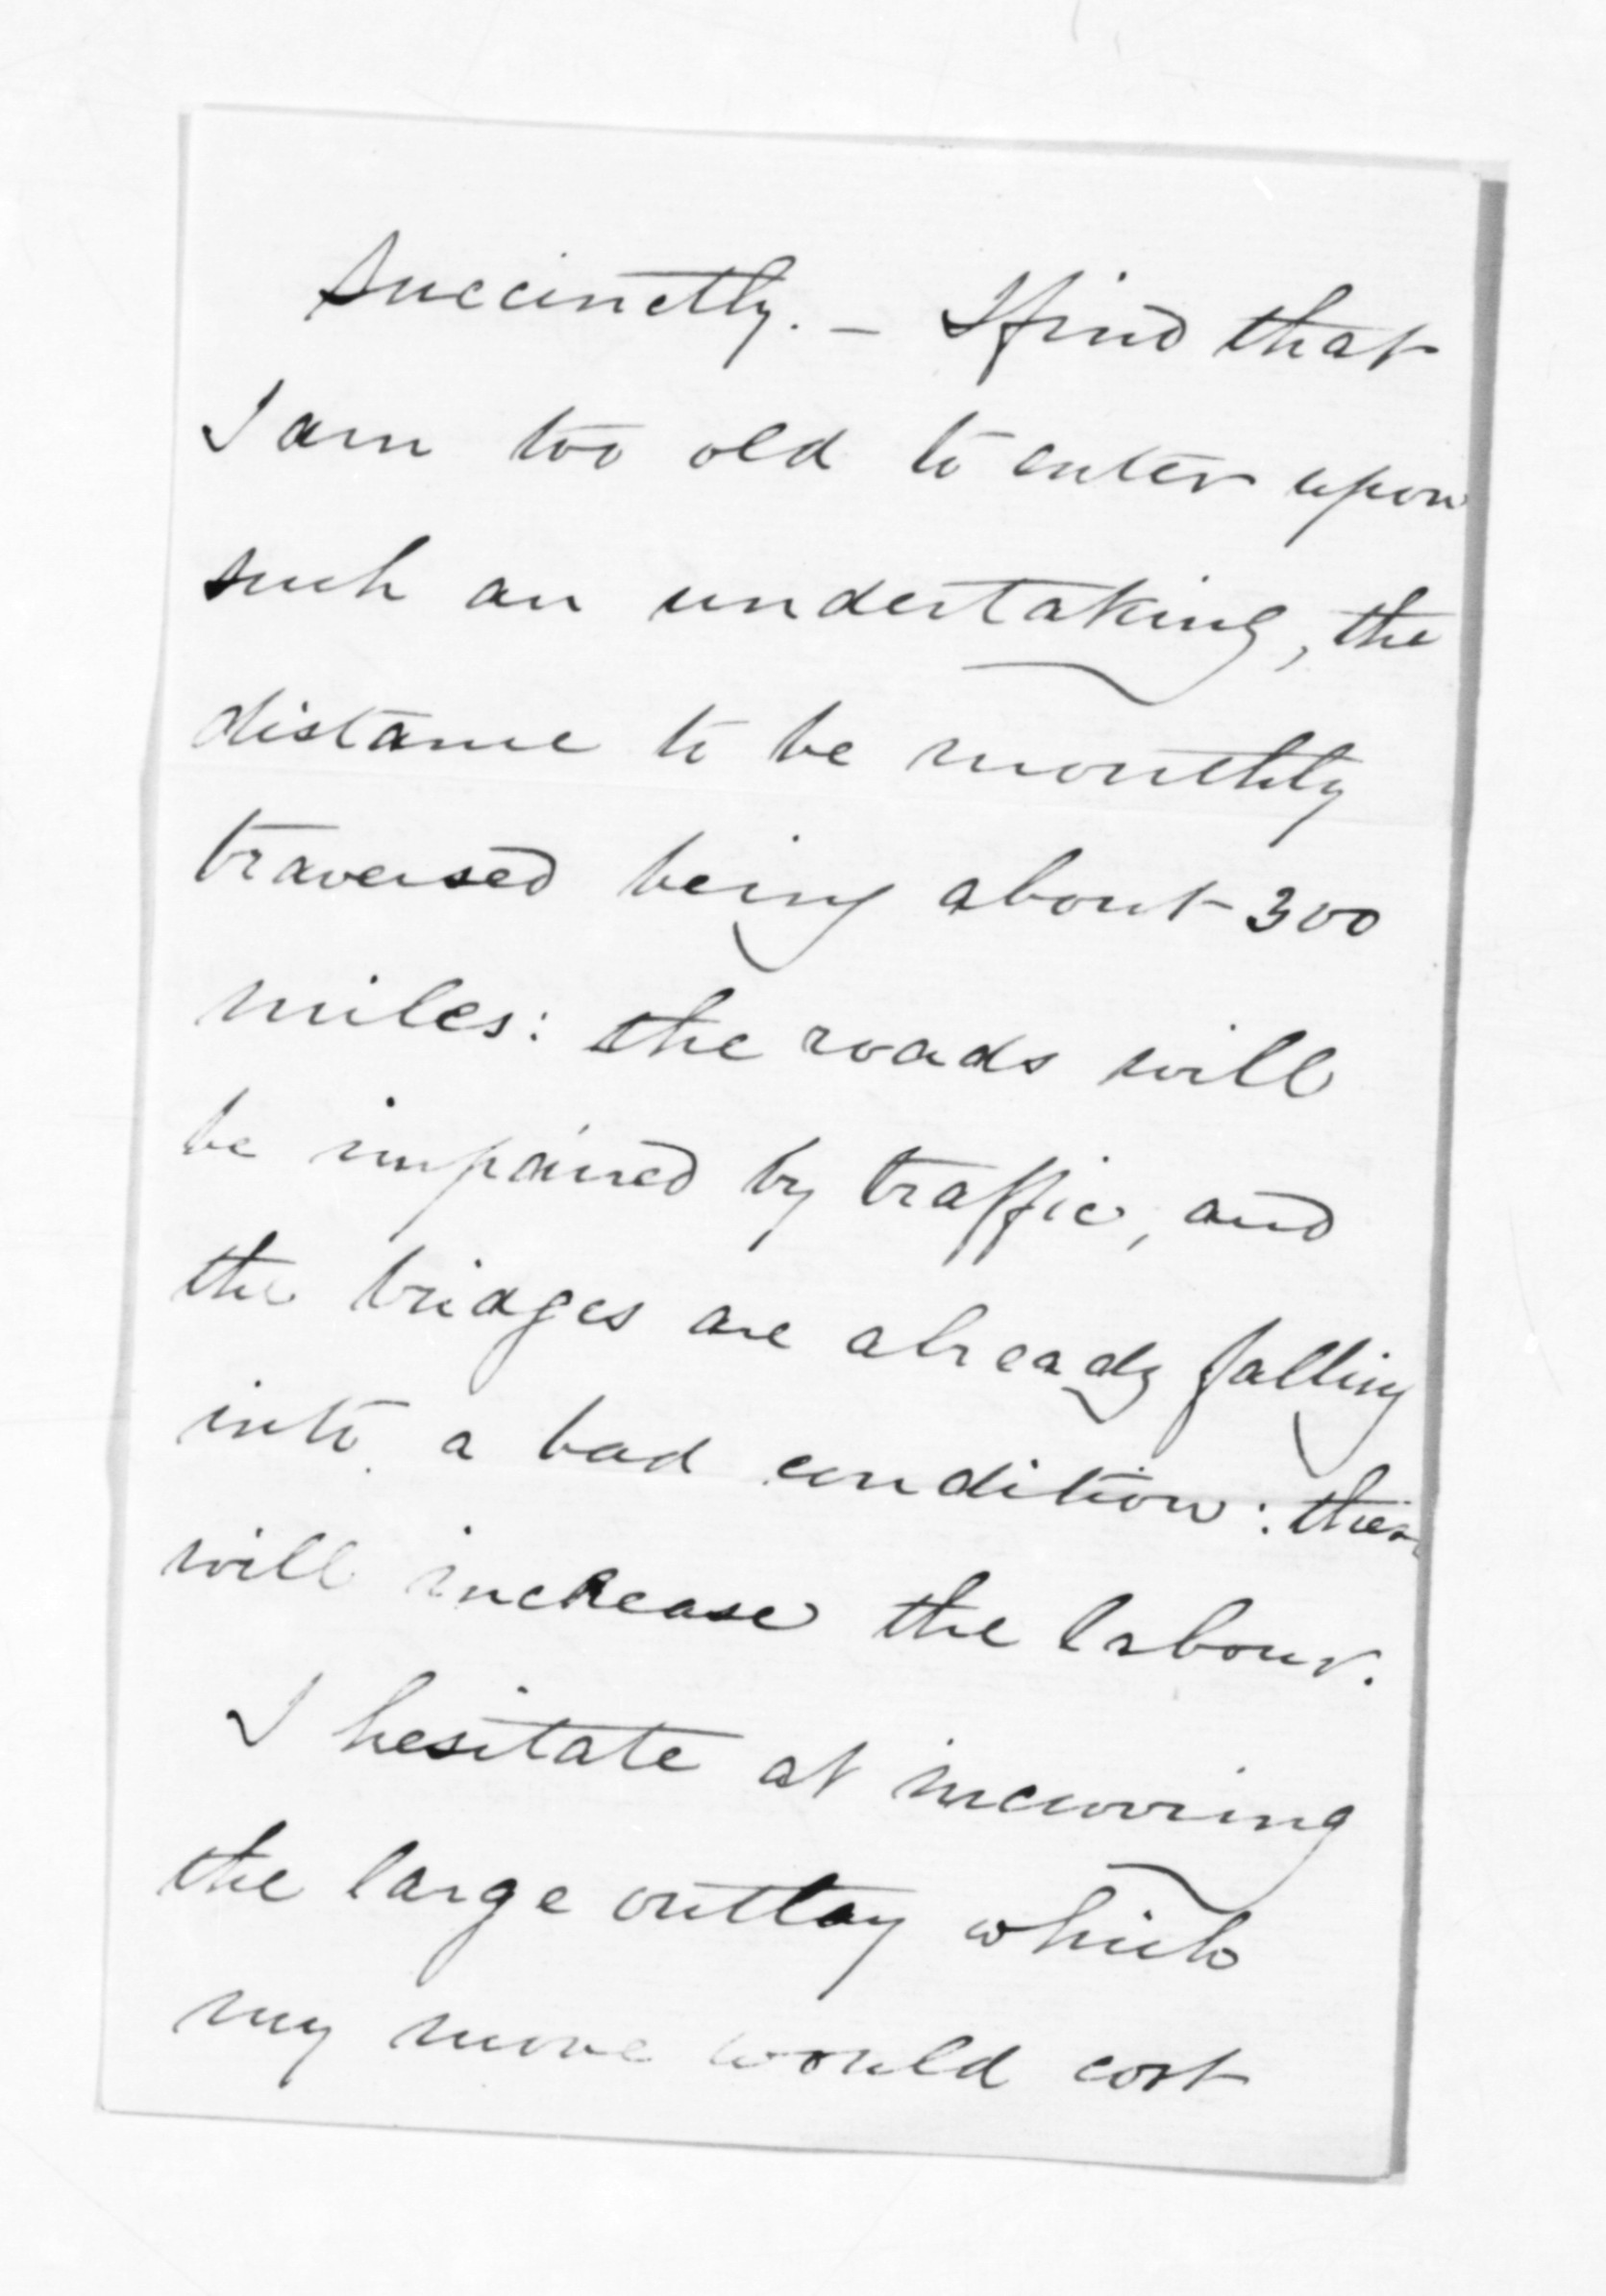 succinctly. – I find that
I am too old to enter upon
such an undertaking, the
distance to be monthly
traversed being about 300
miles: the roads will
be impaired by traffic, and
the bridges are already falling
into a bad condition: these
will increase the labour.
I hesitate at incurring
the large outlay which
my move would cost